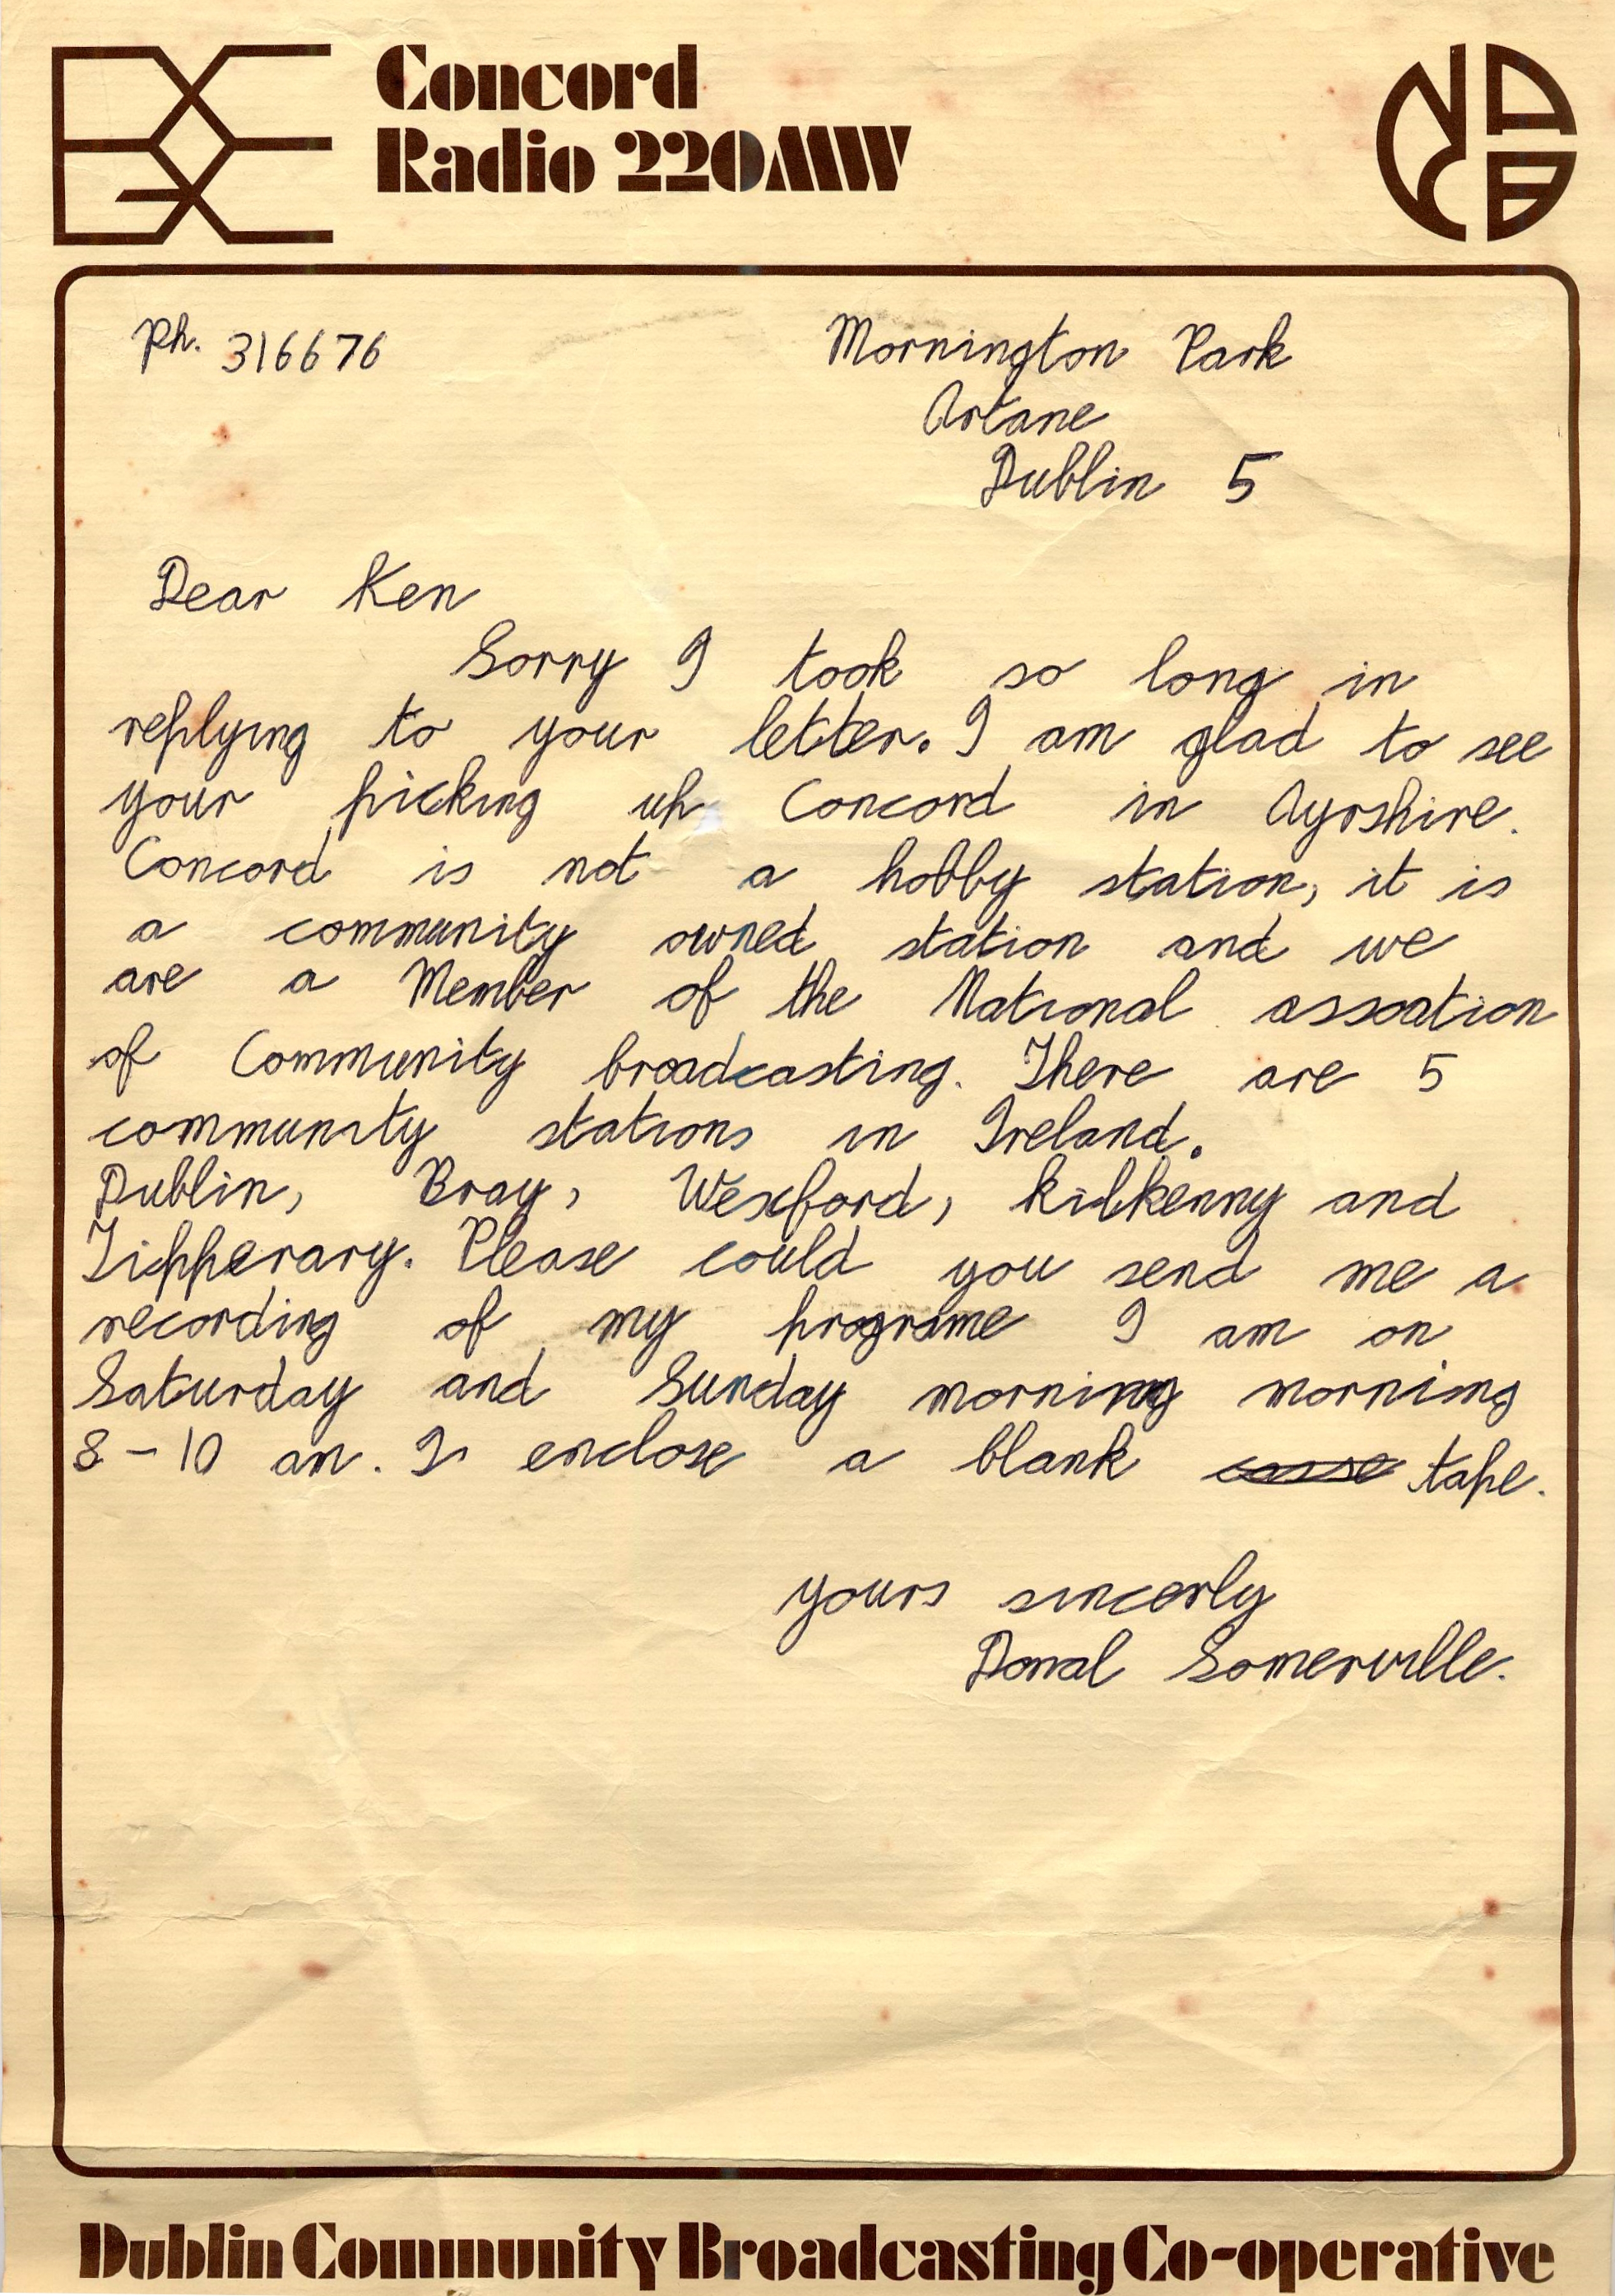 Concord
Radio 220MW
NACB
Ph. 316676
Mornington Park
Artane
Dublin 5
Dear Ken
Sorry I took so long in
replying to your letter. I am glad to see
your picking up Concord in Ayrshire.
Concord is not a hobby station, it is
a community owned station and we
are a Member of the National assoation
of Community broadcasting. There are 5
community stations in Ireland.
Dublin, Bray, Wexford, Kilkenny and
Tipperary. Please could you send me a
recording of my programe I am on
Saturday and Sunday morning morning
8-10 am. I enclose a blank casse tape.
yours sincerly
Donal Somerville.
Dublin Community Broadcasting Co-operative